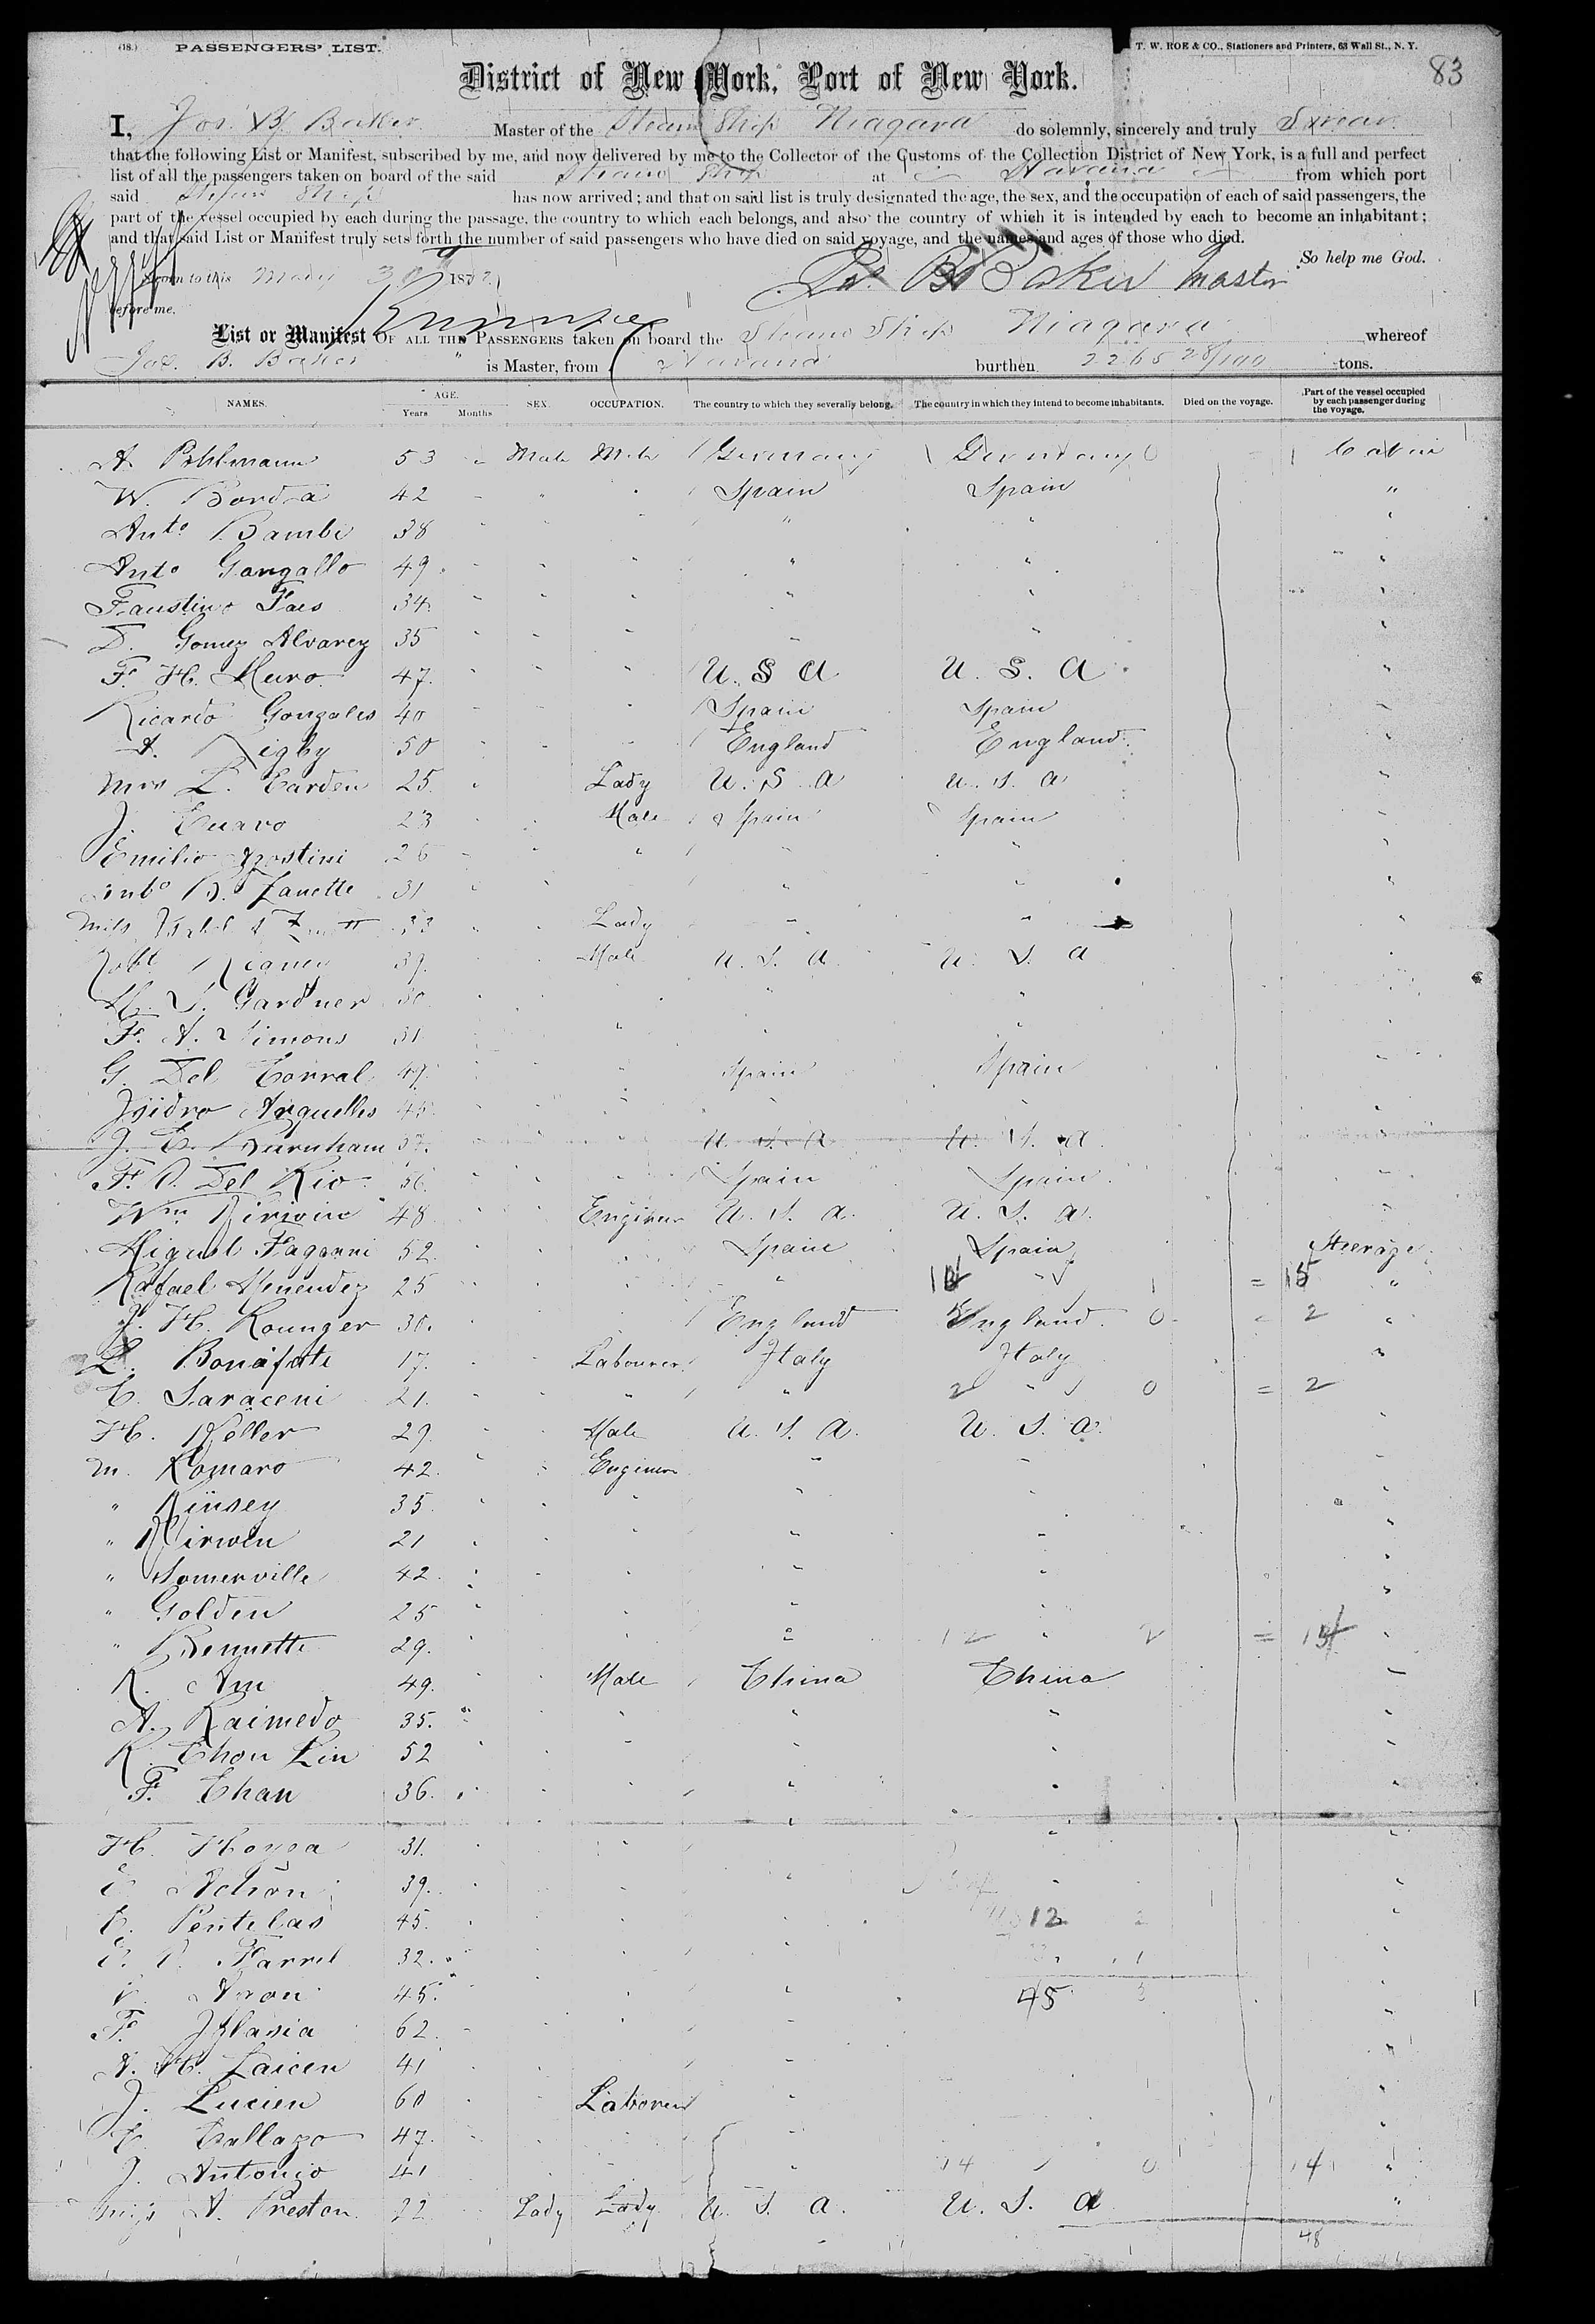 (18.) PASSENGERS' LIST. T. W. ROE & CO., Stationers and Printers, 63 Wall St., N. Y.
83
District of New York, Port of New York.
I, Jos. B. Baker Master of the Steam Ship Niagara do solemnly, sincerely and truly Swear
that the following List or Manifest, subscribed by me, and now delivered by me to the Collector of the Customs of the Collection District of New York, is a full and perfect
list of all the passengers taken on board of the said Steam Ship at Havana from which port
said Steam Ship has now arrived; and that on said list is truly designated the age, the sex, and the occupation of each of said passengers, the
part of the vessel occupied by each during the passage, the country to which each belongs, and also the country of which it is intended by each to become an inhabitant;
and that said List or Manifest truly sets forth the number of said passengers who have died on said voyage, and the names and ages of those who died.
So help me God.
Sworn to this May 188
Jos. B. Baker Master
before me.
List or Manifest OF ALL THE PASSENGERS taken on board the Steam Ship Niagara whereof
Jos. B. Baker is Master, from Havana burthen 2265 28/100 tons.
NAMES. AGE. Years Months SEX. OCCUPATION. The country to which they severally belong. The country in which they intend to become inhabitants. Died on the voyage. Part of the vessel occupied by each passenger during the voyage.
A. Pohlmann 53 Male Germany Germany Cabin
W. Borda 42 " Spain Spain "
Anto. Bambi 38 " " "
Anto Gangallo 49 " " "
Faustino Faes 34 " " "
D. Gomez Alvarez 35 " " "
F. H. Muro 47 U. S. A U. S. A "
Ricardo Gonzales 40 Spain Spain "
A. Rigby 50 England England "
Mrs L. Carden 25 Lady U. S. A U. S. A "
J. Cuavo 23 Male Spain Spain "
Emilio Agostini 26 " " "
B. Zanette 31 " " "
33 Lady " " "
Robt. 39 Male U. S. A U. S. A
H. S. Gardner 30 " "
F. A. Simons 31 " "
G. Del Corral 49 Spain Spain "
Isidro Arguelles 45 " " "
J. E. Burnham 37 U. S. A U. S. A
F. Del Rio 56 Spain Spain "
Wm. Kirwin 48 Engineer U. S. A. U. S. A. "
Miguel Faganni 52 Spain Spain Steerage
Rafael Menendez 25 " " 1 = 15 "
J. H. Rounger 30 England England 0 = 2 "
L. Bonafate 17 Labourer Italy Italy "
C. Saraceni 21 " " 2 " 0 = 2
H. Keller 29 Male U. S. A. U. S. A. "
M. Romaro 42 Engineer " " "
" Kinsey 35 " " "
" Kirwin 21 " " "
" Somerville 42 " " "
" Golden 25 " " "
" Bennette 29 " 12 " 2 = 14 "
K. Am 49 Male China China "
A. Raimedo 35 " " "
K. Chou Lin 52 " " "
F. Chan 36 " " "
H. Hoyea 31 " " "
Achon 39 " " "
C. Pentelas 45 " 12 "
Farrel 32 1 "
Aron 45 " 45 "
F. Iglasia 62 " "
A. H. Laicen 41 " "
J. Lucien 60 Laborer " "
C. Callazo 47 "
J. Antonio 41 " 14 0 14 "
Miss A. Preston 22 Lady Lady U. S. A. U. S. A "
48